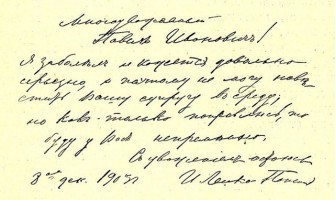 Многоуважаемый
Павел Иванович!
Я заболел и кажется довольно
серьезно а потому не могу наве
стить Вашу супругу в среду;
но как-только поправлюсь, то
буду у Вас непременно.
С уважением
3го дек. 1903 г. И